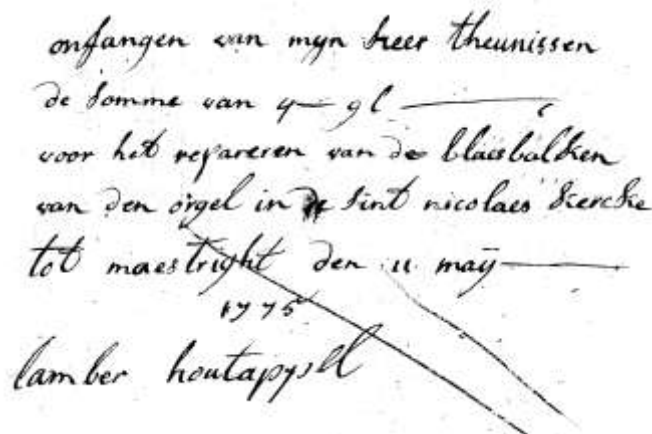 onfangen van myn heer theunissen
de somme van 4 — gl
voor het repareren van de blaesbalken
van den orgel in de sint nicolaes kercke
tot maestright den 11 maÿ
1775
lamber houtappel